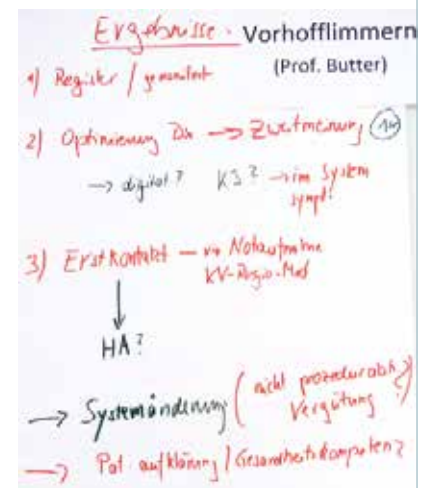 Ergebnisse: Vorhofflimmern
(Prof. Butter)
1) Register /
2) Optimierung Dia → Zweitmeinung
→ digital? KS? → im System
sympt!
3) Erstkontakt – via Notaufnahme
KV-Regio-Med
↓
HA?
→ Systemänderung (nicht prozedurabh.?
Vergütung)
→ Pat. aufklärung / Gesundheitskompetenz